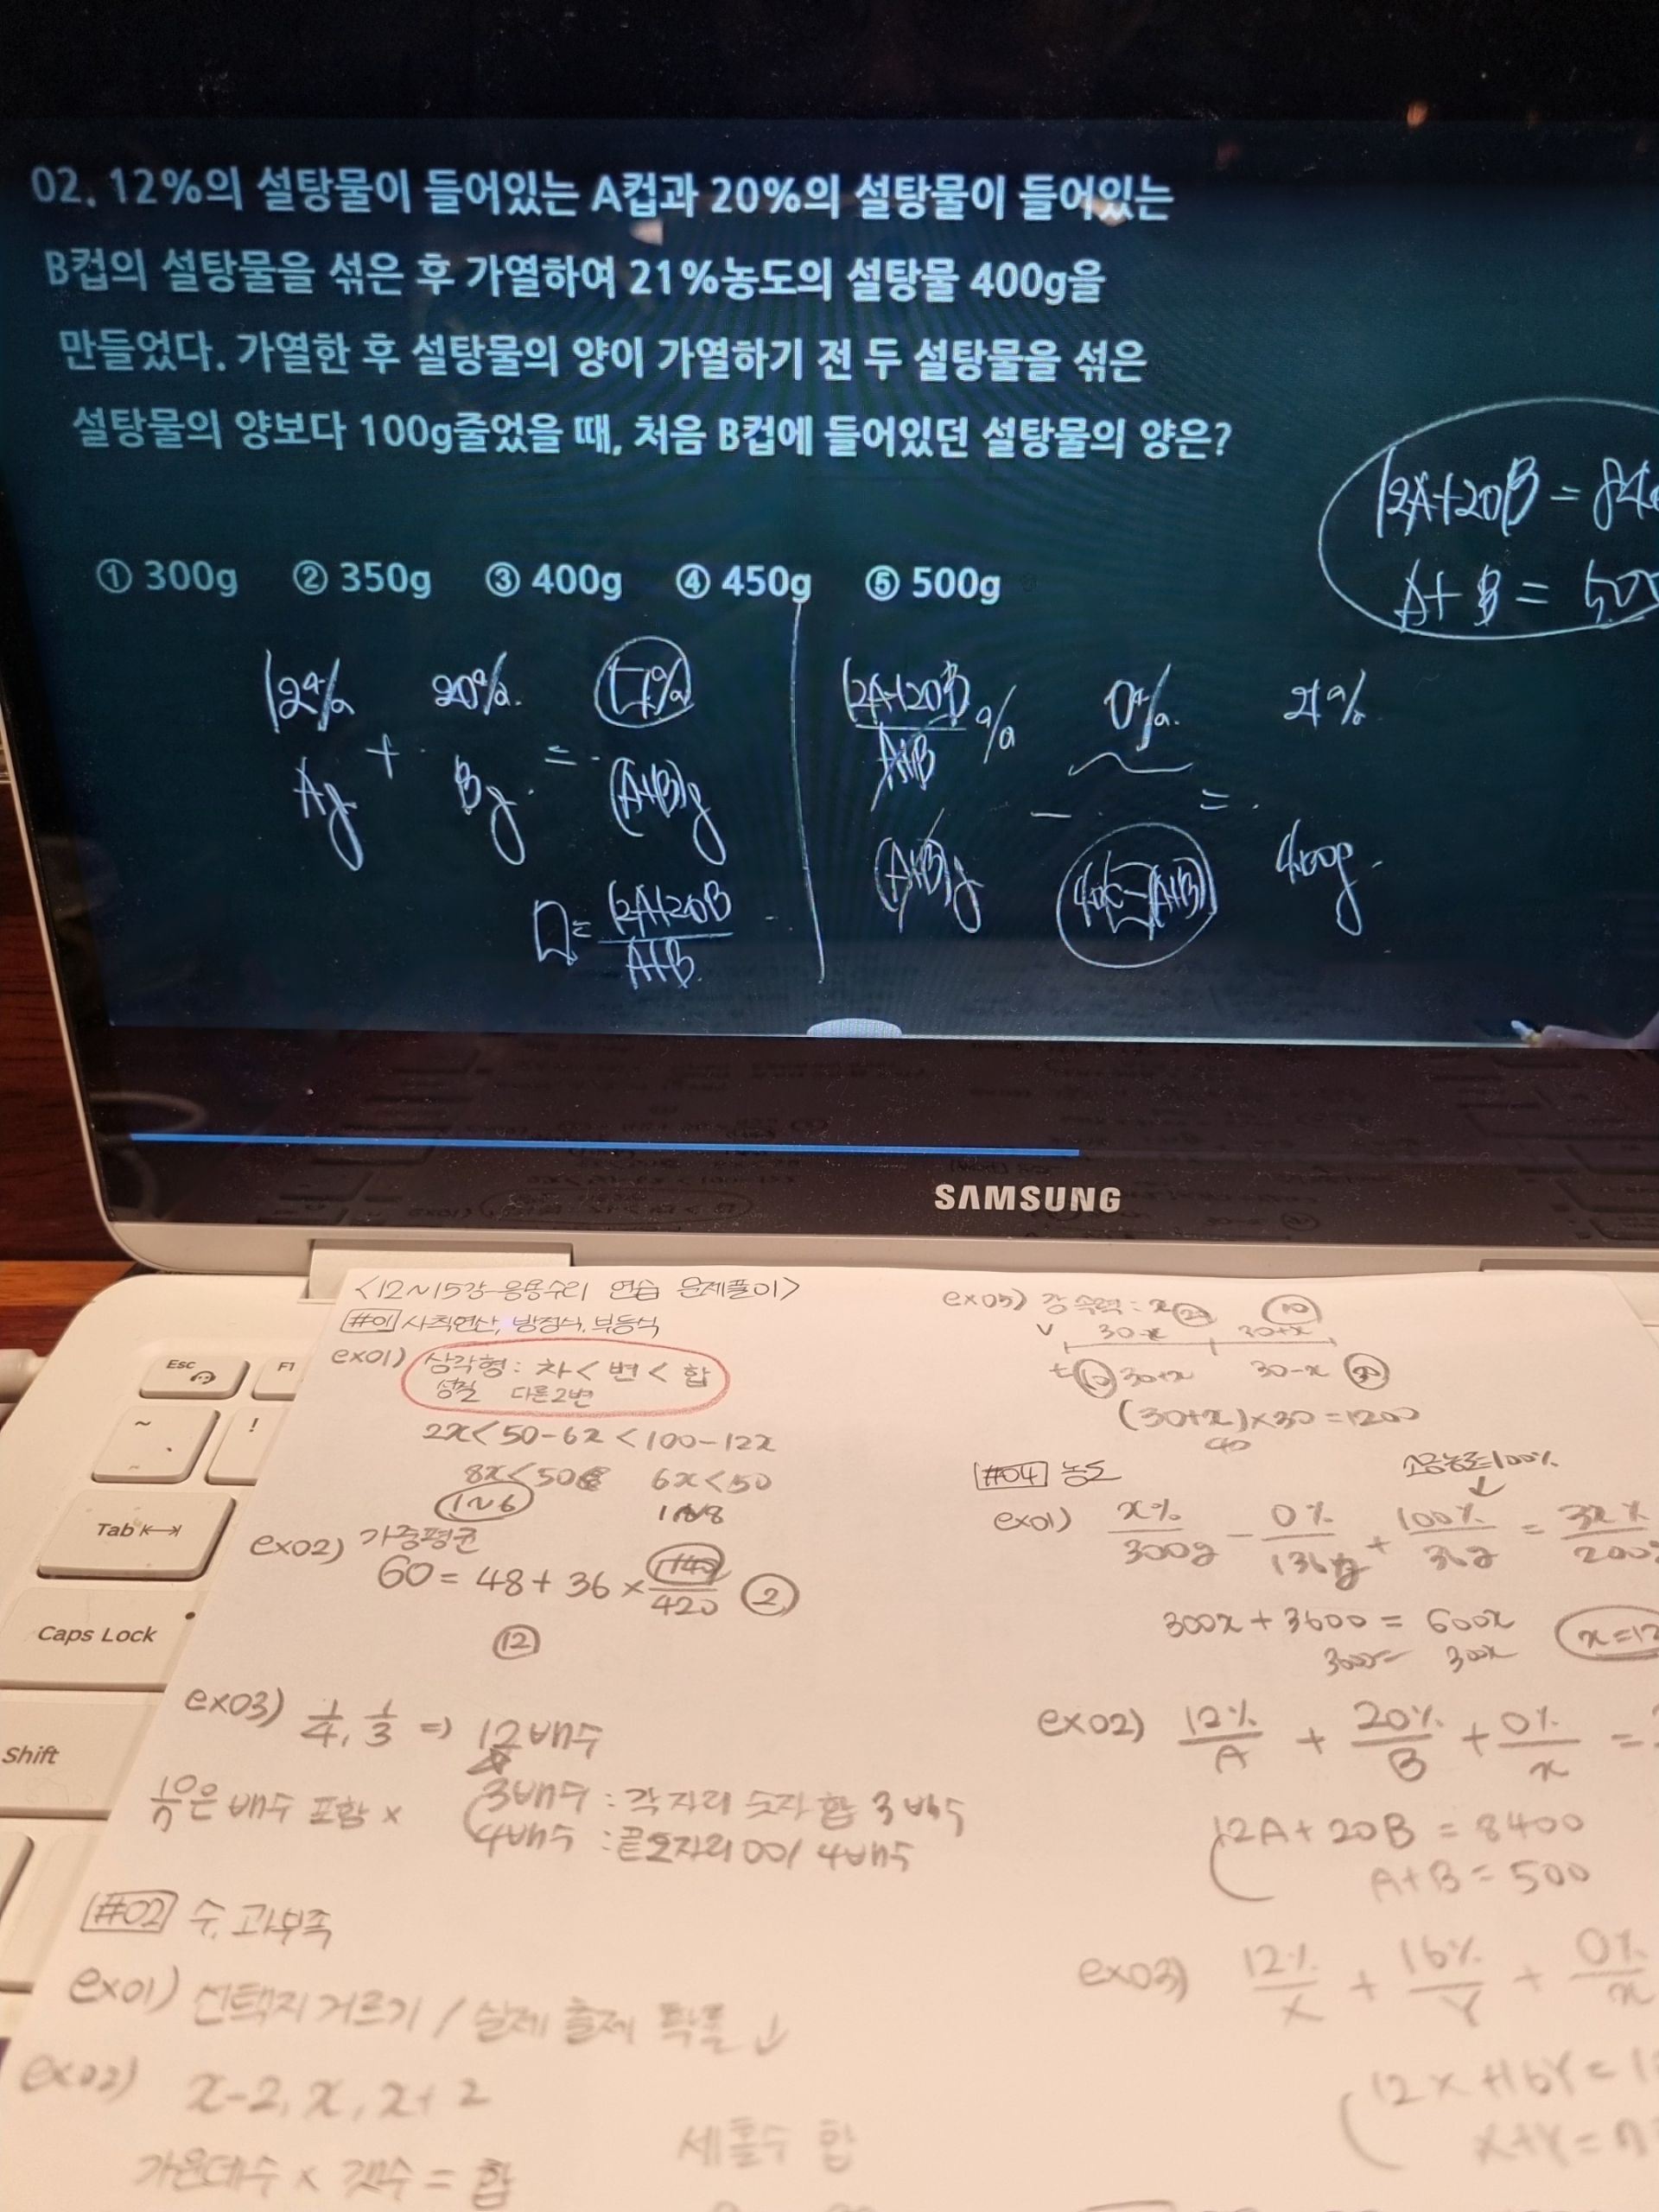 02. 12%의 설탕물이 들어있는 A컵과 20%의 설탕물이 들어있는
B컵의 설탕물을 섞은 후 가열하여 21%농도의 설탕물 400g을
만들었다. 가열한 후 설탕물의 양이 가열하기 전 두 설탕물을 섞은
설탕물의 양보다 100g줄었을 때, 처음 B컵에 들어있던 설탕물의 양은?
12A+20B=840
A+B=500
① 300g ② 350g ③ 400g ④ 450g ⑤ 500g
12% 20% □%
Ag + Bg = (A+B)g
□= 12A+20B
A+B
12A+20B % 0% 21%
A+B
(A+B)g - = 400g
SAMSUNG
<12~15강-응용수리 연습 문제풀이>
#01 사칙연산, 방정식, 부등식
ex01) 삼각형: 차 < 변 < 합
성질 다른2변
2x<50-6x<100-12x
8x<50 6x<50
1~6 1~8
ex02) 가중평균
60=48+36× 140/420 ②
⑫
ex03) 1/4, 1/3 => 12배수
3배수: 각 자리 숫자 합 3배수
4배수: 끝 2자리 00/4배수
은 배수 포함 ×
#02 수, 과부족
ex01) 선택지 거르기 / 실제 출제 확률↓
ex02) x-2, x, x+2
가운데수 × 갯수 = 합
세 홀수 합
ex05) 강 속력: x
V 30-x 30+x
t 30+x 30-x
(30+x)×30=1200
40
#04 농도
소금농도=100%
ex01) x%/300g - 0%/136g + 100%/36g = 3x%/200g
300x+3600=600x
x=12
3600= 300x
ex02) 12%/A + 20%/B + 0%/x =
12A+20B=8400
A+B=500
ex03) 12%/X + 16%/Y + 0%/x
12X+16Y=1
X+Y=
Esc
F1
~
!
Tab
Caps Lock
Shift